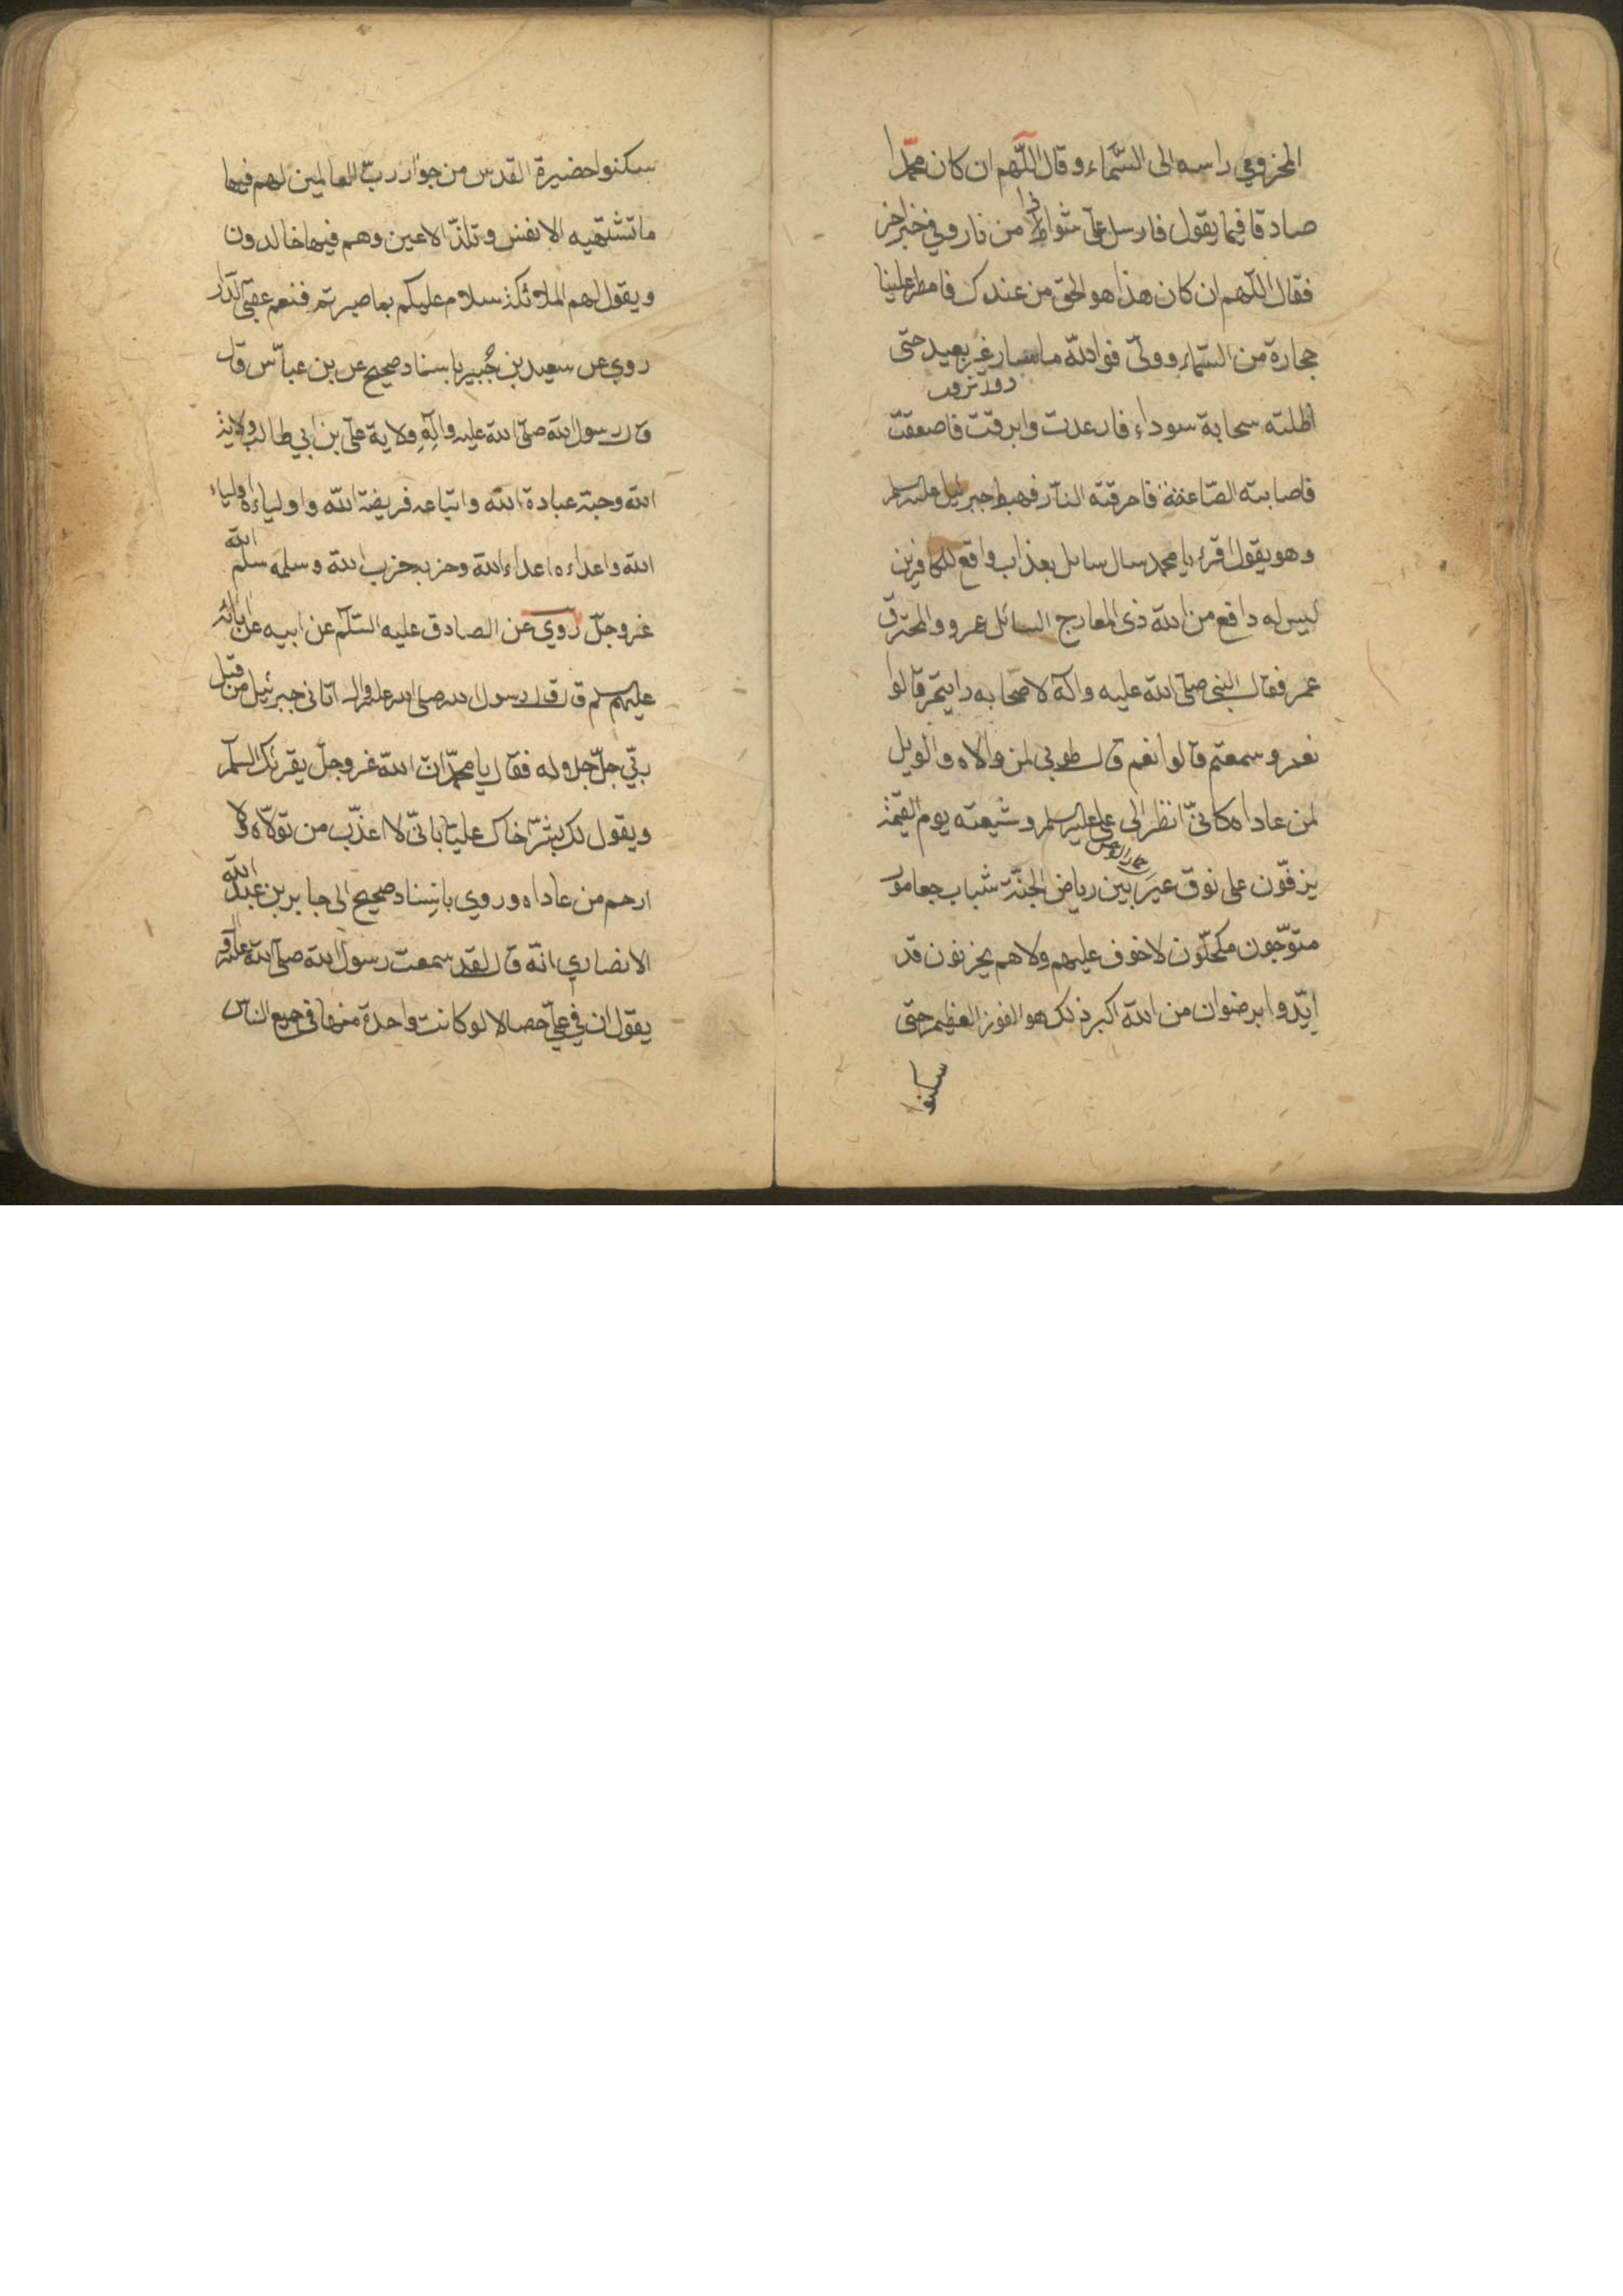 المخزومي راسه الى السَّماء وقال اللّهم ان كان محمّدا
صادقا فيما يقول فارسل علىّ شواظا من نار وفي خبر اخر
فقال اللّهم ان كان هذا هو الحق من عندك فامطر علينا
حجارة من السّماء وولّى فوالله ما سار غير بعيد حتى
اظلته سحابة سوداء فارعدت وابرقت فاصعقت
فاصابته الصّاعقة فاحرقته النّار فهبط جبرئيل عليه السلم
وهو يقول اقرء يا محمد سال سائل بعذاب واقع للكافرين
ليس له دافع من الله ذى المعارج السائل عمرو والمحترق
عمر فقال النبى صلىّ الله عليه وآله لاصحابه رايتم قالوا
نعم وسمعتم قالوا نعم قال طوبى لمن والاه والويل
لمن عاداه كانىّ انظر الى على عليه السلم وشيعته يوم القيمة
يزفّون على نوق عير بين رياض الجنّة شباب
متوّجون مكحّلون لا خوف عليهم ولا هم يحزنون قد
ايّدوا برضوان من الله اكبر ذلك هو الفوز العظيم حتى
سكنوا
سكنوا حضيرة القدس من جوار ربّ العالمين لهم فيها
ما تشتهيه الانفس وتلذّ الاعين وهم فيها خالدون
ويقول لهم الملائكة سلام عليكم بما صبرتم فنعم عقبى الدّار
روي عن سعيد بن جُبير باسناد صحيح عن بن عباّس قال
قال رسول الله صلىّ الله عليه وآلِهِ ولاية علىّ بن ابي طالب ولاية
الله وحبّه عبادة الله واتباعه فريضة الله واولياءه اولياء
الله واعداءه اعداء الله وحزبه حزب الله وسلمه سلم الله
عزوجلّ روي عن الصادق عليه السّلم عن ابيه عن ابائه
عليهم السلم قال قال رسول الله صلى الله عليه واله اتانى جبرئيل من قبل
ربّي جلّ جلاله فقال يا محمّد انّ الله عزوجلّ يقرئك السلم
ويقول لك بشّر اخاك عليّا بانىّ لا اعذّب من تولاّه ولا
ارحم من عاداه وروي باسناد صحيح الى جابر بن عبد الله
الانصاري انّه قال لقد سمعت رسول الله صلىّ الله عليه وآله
يقول ان في علىّ خصالا لو كانت واحدة منها فى جميع الناس